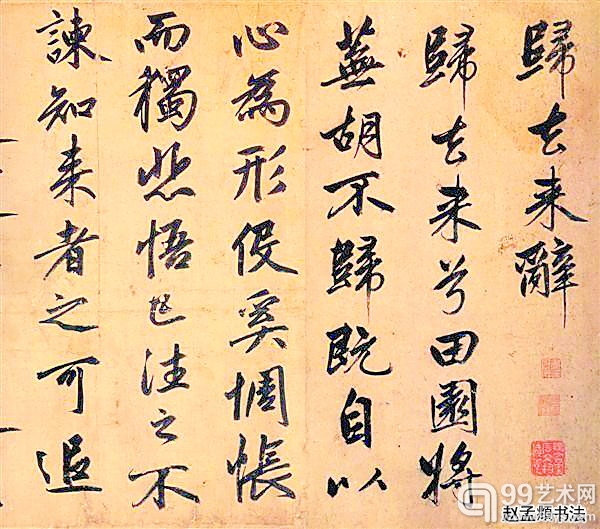 歸去来辭
歸去来兮田園將
蕪胡不歸既自以
心為形役奚惆悵
而獨悲悟已往之不
諫知来者之可追
99艺术网
赵孟頫书法